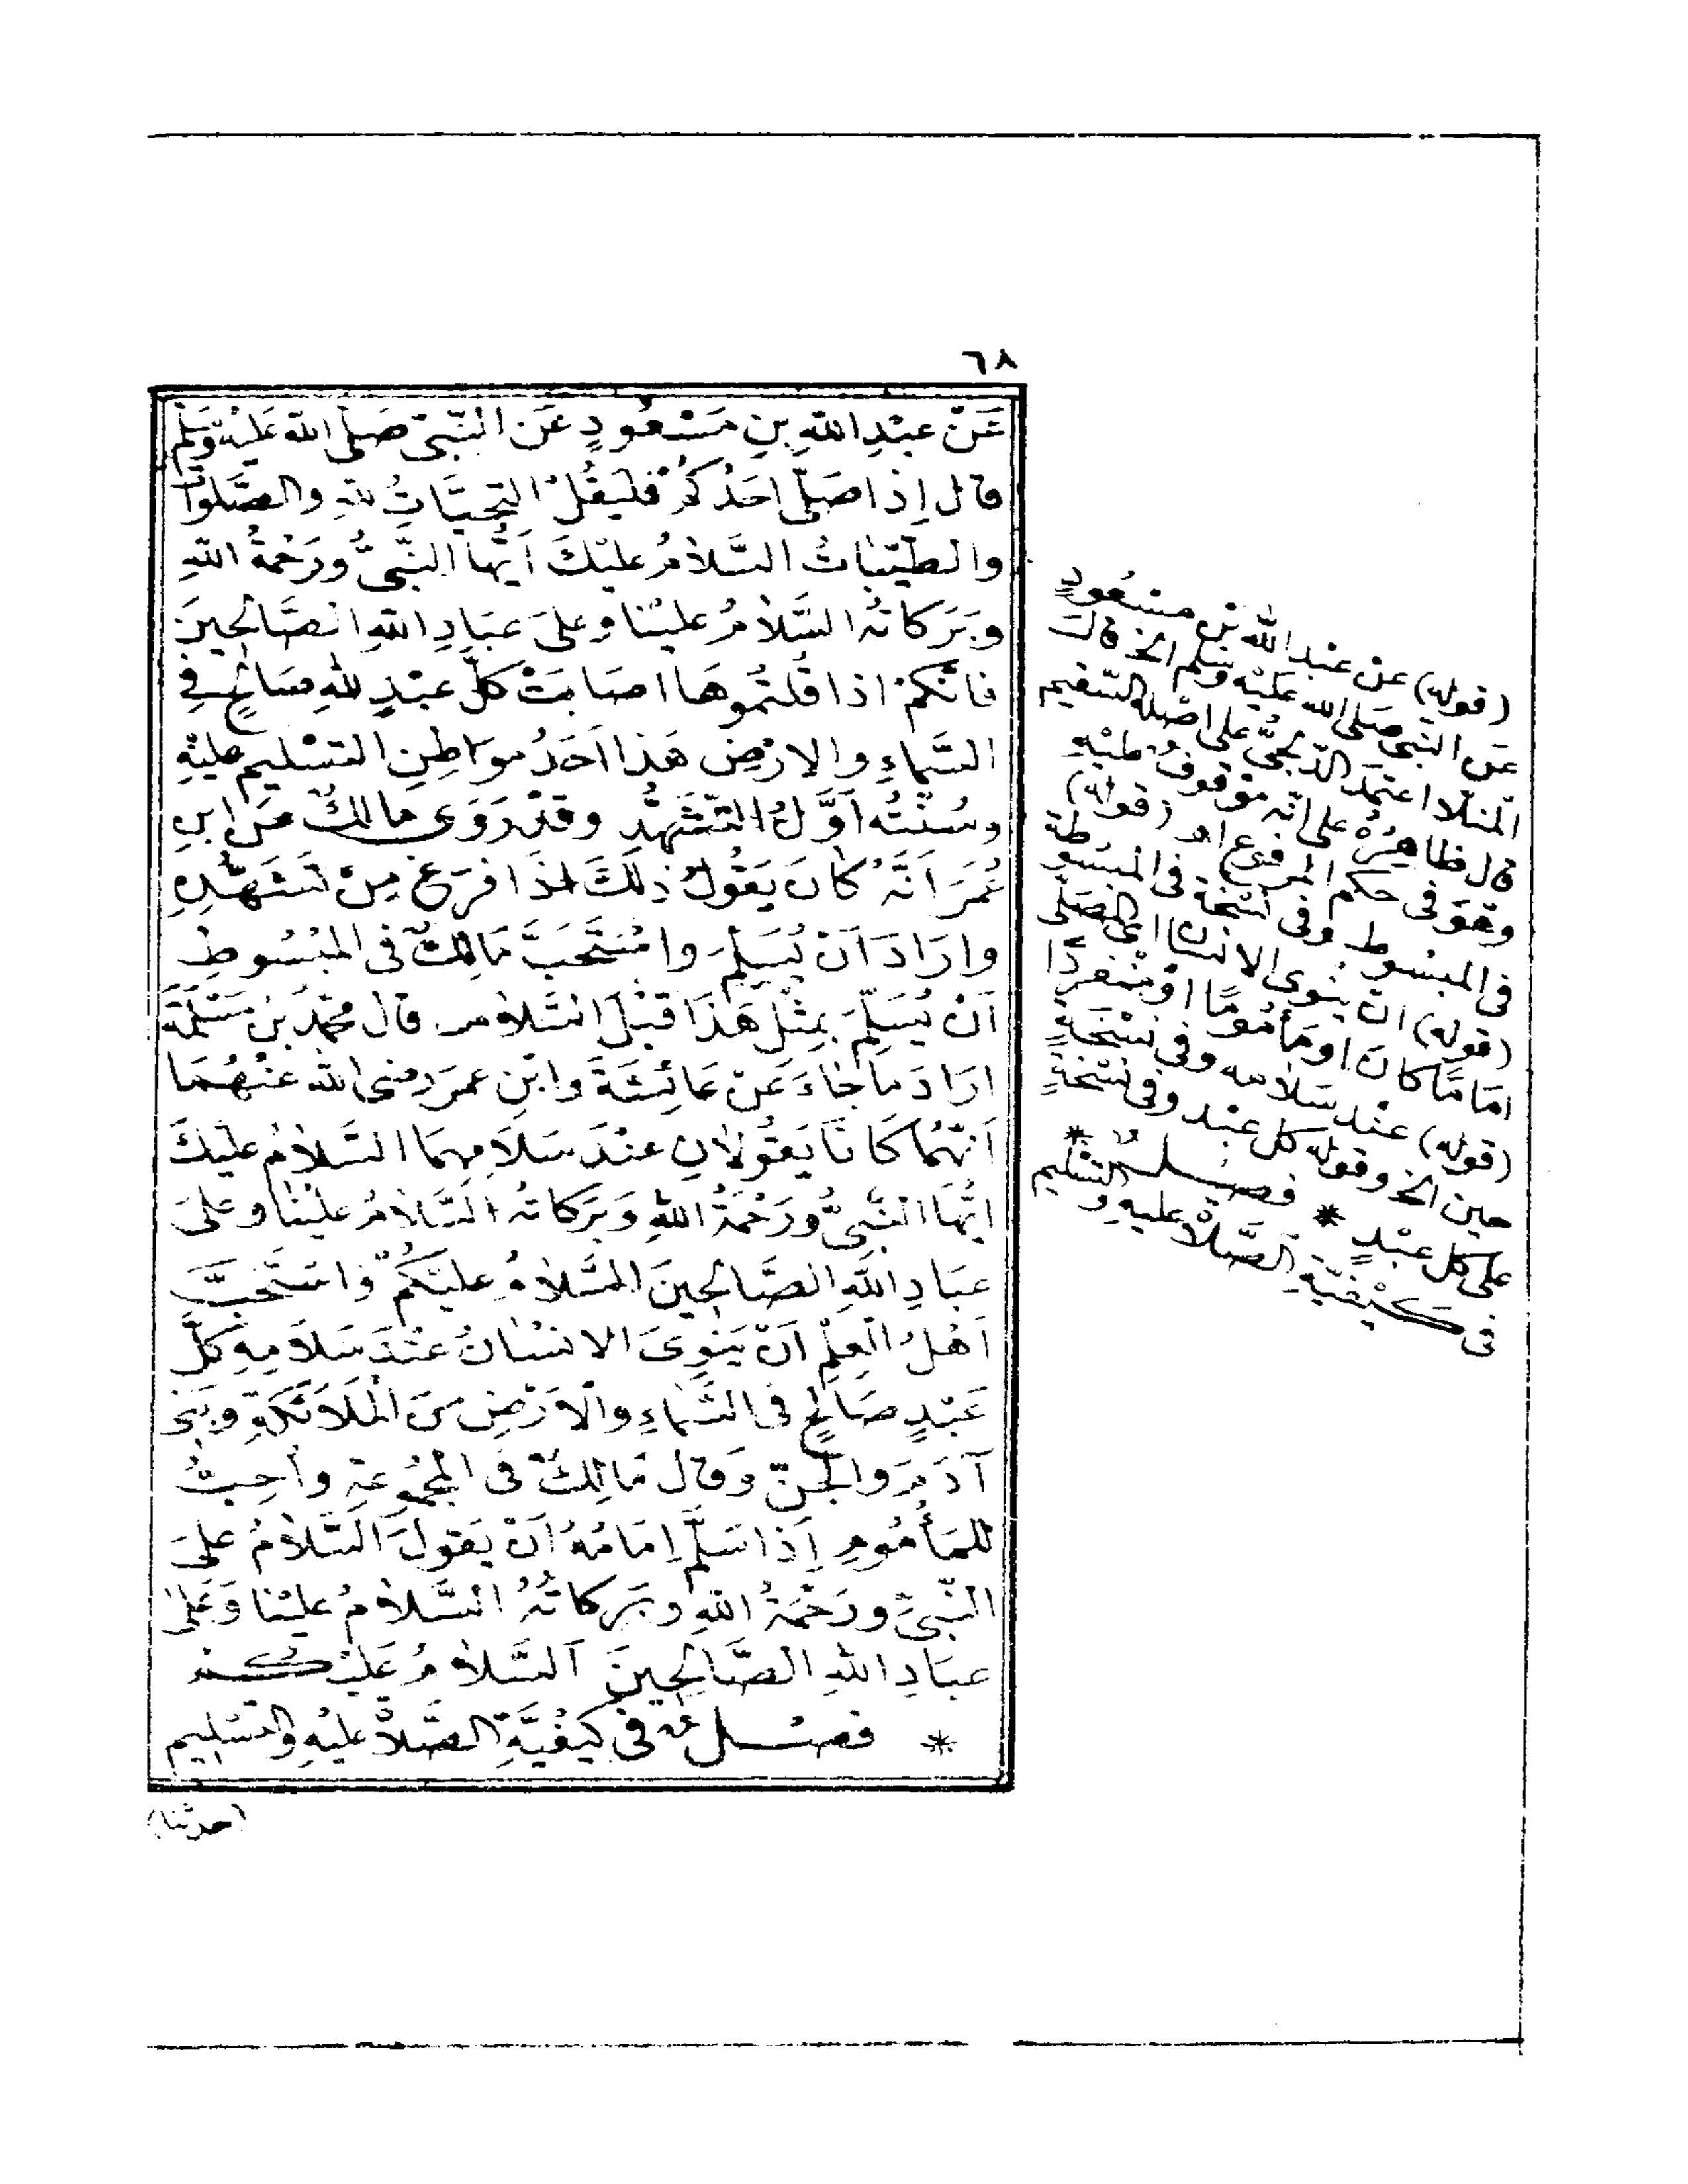 ٦٨
عَنْ عبْدِ اللهِ بنِ مَسْعُودٍ عَنِ النَّبِيّ صَلَّى اللهُ عَلَيْهِ وَسَلَّم
قال إِذا صَلَّى اَحَدُكُمْ فَلْيَقُلْ التَّحِيَّاتُ للهِ والصَّلَوَاتُ
والطَّيِّبَاتُ السَّلاَمُ عليْكَ اَيُّهَا النَّبِيُّ ورَحْمَةُ اللهِ
وبَرَكَاتُهُ السَّلاَمُ عليْنَا وعلَى عبَادِ اللهِ الصَّالِحِينَ
فانَّكُمْ اذا قُلْتُمُوهَا اصَابَتْ كلَّ عبْدٍ للهِ صَالِحٍ فِي
السَّمَاءِ والارْضِ هَذا اَحَدُ مَوَاطِنِ التسْلِيمِ عليْهِ
وسُنَّتُه اَوَّلُ التَّشَهُّدِ وقَدْ رَوَى مالكٌ عَنِ ابنِ
عُمَرَ اَنَّهُ كانَ يَقُولُ ذلكَ اِذَا فرَغَ مِنْ تَشَهُّدِهِ
وارَادَ اَنْ يُسَلِّمَ واسْتَحَبَّ مَالِكٌ فى المبْسُوطِ
اَنْ يُسَلِّمَ بِمِثْلِ هَذَا قَبْلَ السَّلاَمِ قال محمّدُ بنُ مَسْلَمَةَ
ارَادَ ما جَاءَ عَنْ عَائِشَةَ وابْنِ عمرَ رضى الله عنْهُمَا
اَنَّهُمَا كَانَا يَقُولاَنِ عنْدَ سَلاَمِهِمَا السَّلاَمُ عليْكَ
ايُّهَا النَّبِيُّ ورَحْمَةُ اللهِ وَبَرَكاتُهُ السَّلاَمُ عليْنَا وعلَى
عبَادِ اللهِ الصَّالِحِينَ السَّلاَمُ عليْكُمْ واسْتَحَبَّ
اَهْلُ العِلْمِ اَنْ يَنْوِىَ الانْسَانُ عنْدَ سَلاَمِهِ كلَّ
عَبْدٍ صَالِحٍ فى السَّمَاءِ والاَرْضِ مِنَ الْمَلاَئكَةِ وبَنِى
آدَمَ والجِنّ وَقال مَالِكٌ فى المجْمُوعَةِ واُحِبُّ
للمَأْمُومِ اِذا سَلَّمَ اِمَامُهُ اَنْ يَقولَ السَّلاَمُ علَى
النَّبِيّ ورَحْمَةُ اللهِ وبَرَكاتُهُ السَّلاَمُ عليْنَا وَعَلَى
عبَادِ اللهِ الصَّالِحِينَ اَلسَّلاَمُ عَلَيْكُمْ
* فصْلٌ فى كيْفيَّةِ الصَّلاَةِ عليْهِ والتسْلِيمِ
(حدثنا)
(قوله) عنْ عبْدِ الله بْنِ مسْعُودٍ
عَنِ النَّبِي صَلى الله عَليْه وسَلم الخ قال
المنلا اعتمَد الدّلجىُّ على اصْله السّقيم
قال ظاهِرُهْ على انّه موْقوفٌ عليْه
وهَوَ فى حكم المرفوع اهـ (قوله)
فى المبْسوط وفى نسْخة فى المبسُوطة
(قوله) انْ ينْوىَ الانسَان اى المصَلّى
امَامًا كانَ اوْ مَأْمُومًا اوْ منْفرِدًا
(قوله) عنْد سَلامه وفى نسْخَةٍ
حين الخ وقوله كل عبْد وفى نسْخةٍ
على كل عبْدٍ * فصْلٌ *
فى كيْفيّةِ الصّلاة عليه والتسْليم